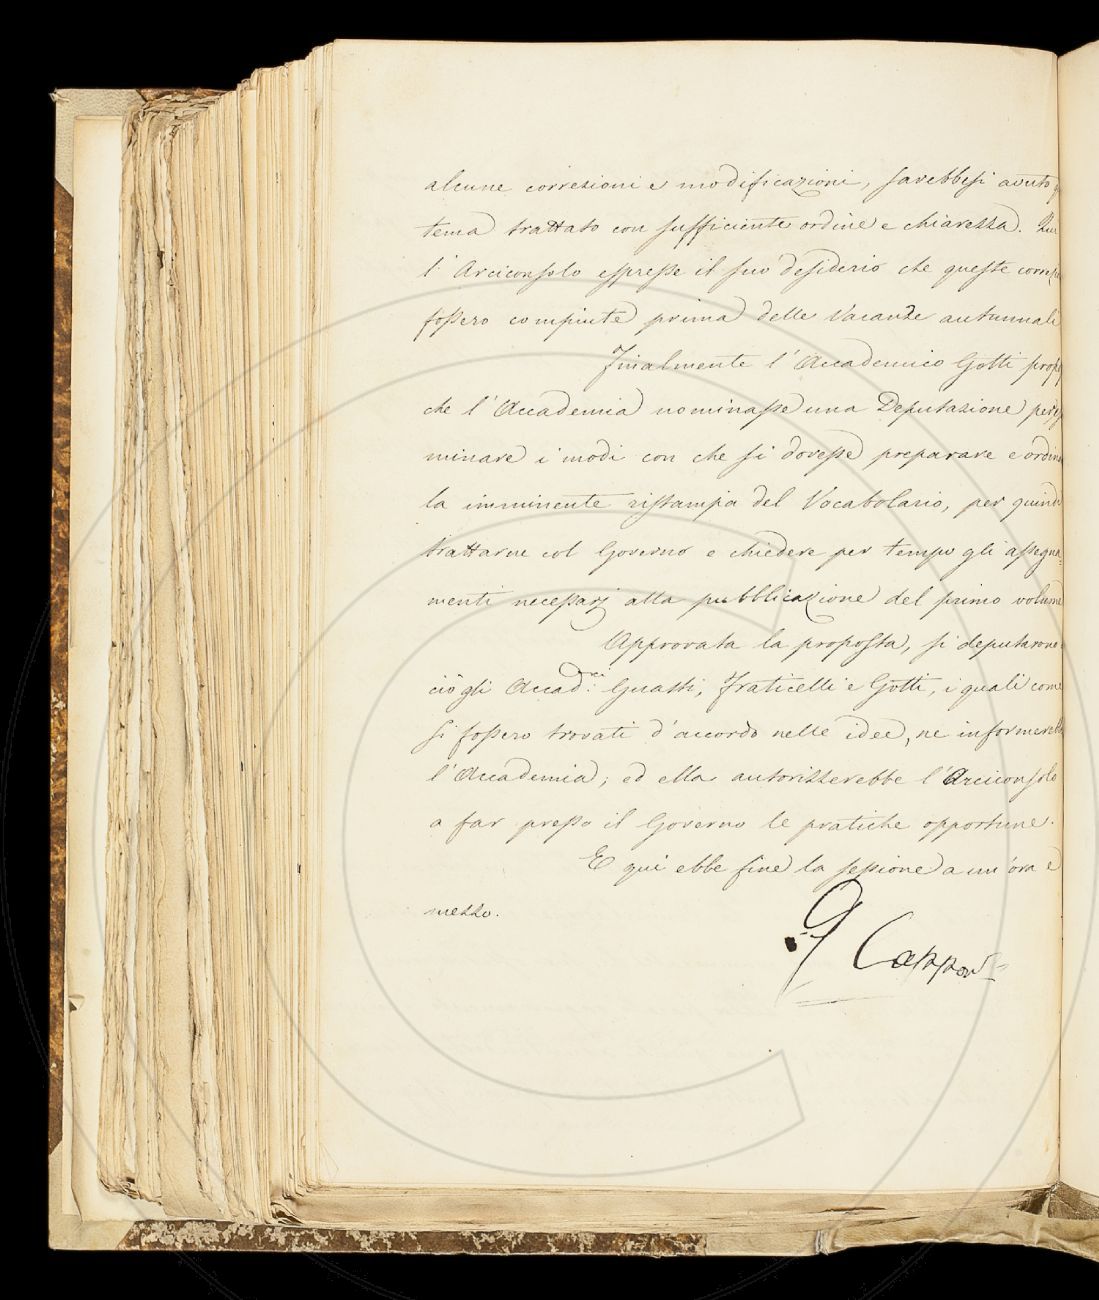 alcune correzioni e modificazioni, sarebbesi avuto
tema trattato con sufficiente ordine e chiarezza.
l'Arciconsolo espresse il suo desiderio che queste
fossero compiute prima delle Vacanze autunnali
Finalmente l'Accademico Gotti
che l'Accademia nominasse una Deputazione per
minare i modi con che si dovesse preparare e
la imminente ristampa del Vocabolario, per
trattarne col Governo e chiedere per tempo gli assegna-
menti necessarj alla pubblicazione del primo volume
Approvata la proposta, si deputarono
ciò gli Accad.ci Guasti, Fraticelli e Gotti, i quali come
si fossero trovati d'accordo nelle idee, ne
l'Accademia; ed ella autorizzerebbe l'Arciconsolo
a far presso il Governo le pratiche opportune.
E qui ebbe fine la sessione a un'ora e
mezzo.
G Capponi